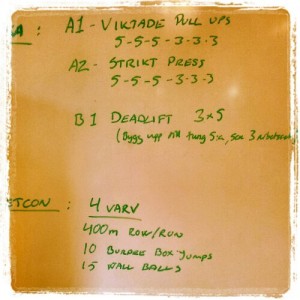 A : A1 - VIKTADE PULL UPS
5-5-5-3-3-3
A2 - STRIKT PRESS
5-5-5-3-3-3
B1 DEADLIFT 3x5
(Bygg upp till tung 5:a, sen 3
STCON : 4 VARV
400m ROW/RUN
10 BURPEE BOX JUMPS
15 WALL BALLS